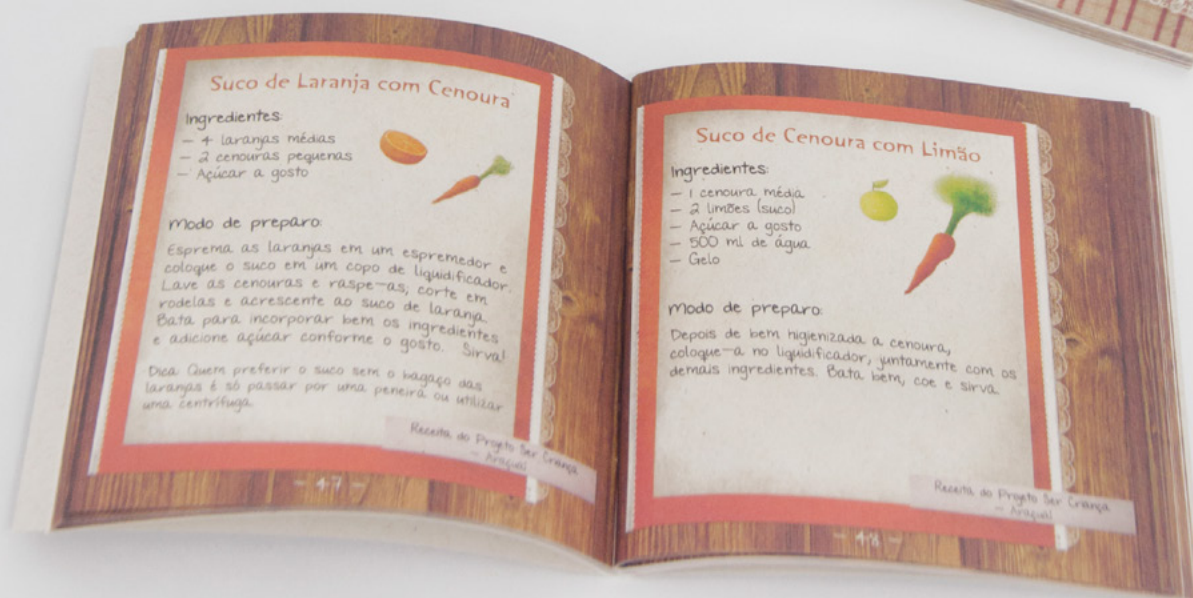 Suco de Laranja com Cenoura
Ingredientes:
- 4 laranjas médias
- 2 cenouras pequenas
- Açúcar a gosto
Modo de preparo:
Esprema as laranjas em um espremedor e
coloque o suco em um copo de liquidificador.
Lave as cenouras e raspe-as, corte em
rodelas e acrescente ao suco de laranja.
Bata para incorporar bem os ingredientes
e adicione açúcar conforme o gosto. Sirva!
Dica: Quem preferir o suco sem o bagaço das
laranjas é só passar por uma peneira ou utilizar
uma centrífuga.
Receita do Projeto Ser Criança
- Araçuaí
- 47 -
Suco de Cenoura com Limão
Ingredientes:
- 1 cenoura média
- 2 limões (suco)
- Açúcar a gosto
- 500 ml de água
- Gelo
Modo de preparo:
Depois de bem higienizada a cenoura,
coloque-a no liquidificador, juntamente com os
demais ingredientes. Bata bem, coe e sirva.
Receita do Projeto Ser Criança
- Araçuaí
- 48 -